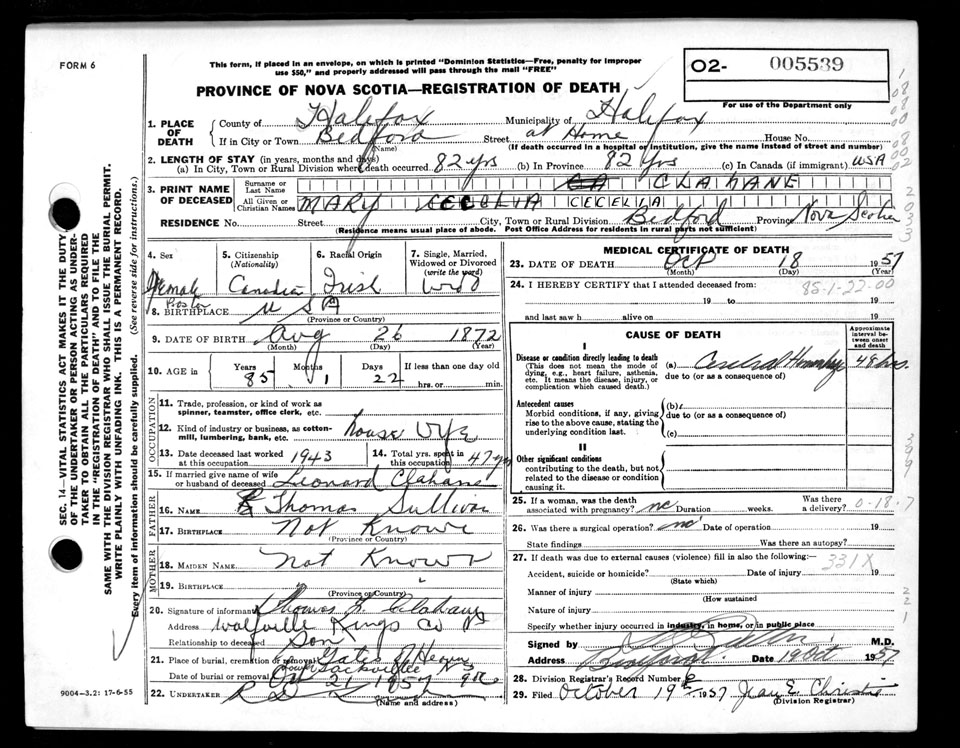 FORM 6
This form, if placed in an envelope, on which is printed "Dominion Statistics—Free, penalty for improper
use $50," and properly addressed will pass through the mail "FREE"
O2- 005539
PROVINCE OF NOVA SCOTIA—REGISTRATION OF DEATH
For use of the Department only
1. PLACE OF DEATH
County of Halifax Municipality of Halifax
If in City or Town Bedford Street at Home House No.
(Name) (If death occurred in a hospital or institution, give the name instead of street and number)
2. LENGTH OF STAY (in years, months and days)
(a) In City, Town or Rural Division where death occurred 82 yrs (b) In Province 82 yrs (c) In Canada (if immigrant) USA
3. PRINT NAME OF DECEASED
Surname or Last Name CLAHANE
All Given or Christian Names MARY CECELIA CECELIA
RESIDENCE No. Street City, Town or Rural Division Bedford Province Nova Scotia
(Residence means usual place of abode. Post Office Address for residents in rural parts not sufficient)
4. Sex
Female
5. Citizenship
(Nationality)
Canadian
6. Racial Origin
Irish
7. Single, Married,
Widowed or Divorced
(write the word)
Wid
8. BIRTHPLACE Boston U S A
(Province or Country)
9. DATE OF BIRTH Aug 26 1872
(Month) (Day) (Year)
10. AGE in Years Months Days If less than one day old
85 1 22 hrs. or min.
OCCUPATION
11. Trade, profession, or kind of work as
spinner, teamster, office clerk, etc.
12. Kind of industry or business, as cotton-
mill, lumbering, bank, etc. House Wife
13. Date deceased last worked
at this occupation 1943
14. Total yrs. spent in
this occupation 47 yrs
15. If married give name of wife
or husband of deceased Leonard Clahane
FATHER
16. NAME Thomas Sullivan
17. BIRTHPLACE Not Known
(Province or Country)
MOTHER
18. MAIDEN NAME not Known
19. BIRTHPLACE "
(Province or Country)
20. Signature of informant Thomas L. Clahane
Address Wolfville Kings Co NS
Relationship to deceased Son
21. Place of burial, cremation or removal Gate of Heaven
Lower Sackville NS
Date of burial or removal Oct 21 1957
22. UNDERTAKER
(Name and address)
9004-3.2: 17-6-55
SEC. 14—VITAL STATISTICS ACT MAKES IT THE DUTY
OF THE UNDERTAKER OR PERSON ACTING AS UNDER-
TAKER TO OBTAIN ALL THE PARTICULARS REQUIRED
IN THE "REGISTRATION OF DEATH" AND TO FILE THE
SAME WITH THE DIVISION REGISTRAR WHO SHALL ISSUE THE BURIAL PERMIT.
WRITE PLAINLY WITH UNFADING INK. THIS IS A PERMANENT RECORD.
Every item of information should be carefully supplied. (See reverse side for instructions.)
MEDICAL CERTIFICATE OF DEATH
23. DATE OF DEATH Oct 18 1957
(Month) (Day) (Year)
24. I HEREBY CERTIFY that I attended deceased from:
85-1-22-00
19 to 19
and last saw h alive on 19
CAUSE OF DEATH
Approximate interval between onset and death
I
Disease or condition directly leading to death
(This does not mean the mode of
dying, e.g., heart failure, asthenia,
etc. It means the disease, injury, or
complication which caused death.)
(a) Cerebral Hemorrhage 48 hrs.
due to (or as a consequence of)
Antecedent causes
Morbid conditions, if any, giving
rise to the above cause, stating the
underlying condition last.
(b)
due to (or as a consequence of)
(c)
II
Other significant conditions
contributing to the death, but not
related to the disease or condition
causing it.
25. If a woman, was the death
associated with pregnancy? no Duration weeks. Was there a delivery? 0-18-7
26. Was there a surgical operation? no Date of operation 19
State findings Was there an autopsy?
27. If death was due to external causes (violence) fill in also the following:—
331X
Accident, suicide or homicide? Date of injury 19
(State which)
Manner of injury
(How sustained
Nature of injury
Specify whether injury occurred in industry, in home, or in public place
Signed by M.D.
Address Bedford Date 19 Oct 1957
28. Division Registrar's Record Number
29. Filed October 19 1957 Jean E. Christie
(Division Registrar)